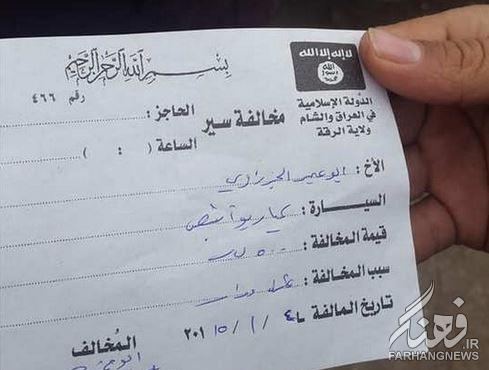 بسم الله الرحمن الرحيم
لا إله إلا الله
الله
رسول
محمد
الدولة الإسلامية
في العراق والشام
ولاية الرقة
رقم ٤٦٦
مخالفة سير
الحاجز :
الساعة ( : )
الأخ : ابو عمير الجزراوي
السيارة :
قيمة المخالفة : ٥٠٠
سبب المخالفة :
تاريخ المالفة ٤ / ١ / ٢٠١٥
المُخالف
ابو
فرهنگ
.IR
FARHANGNEWS